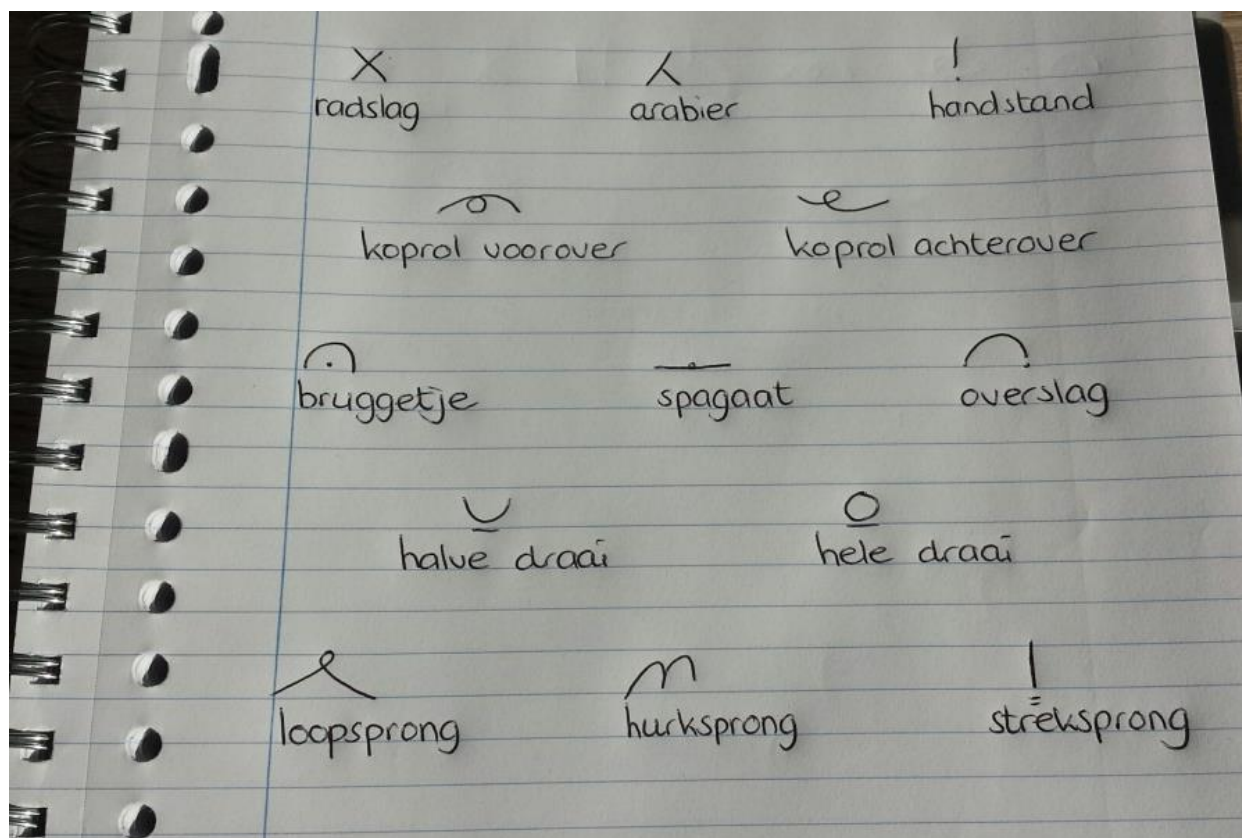 radslag arabier handstand
koprol voorover koprol achterover
bruggetje spagaat overslag
halve draai hele draai
loopsprong hurksprong streksprong